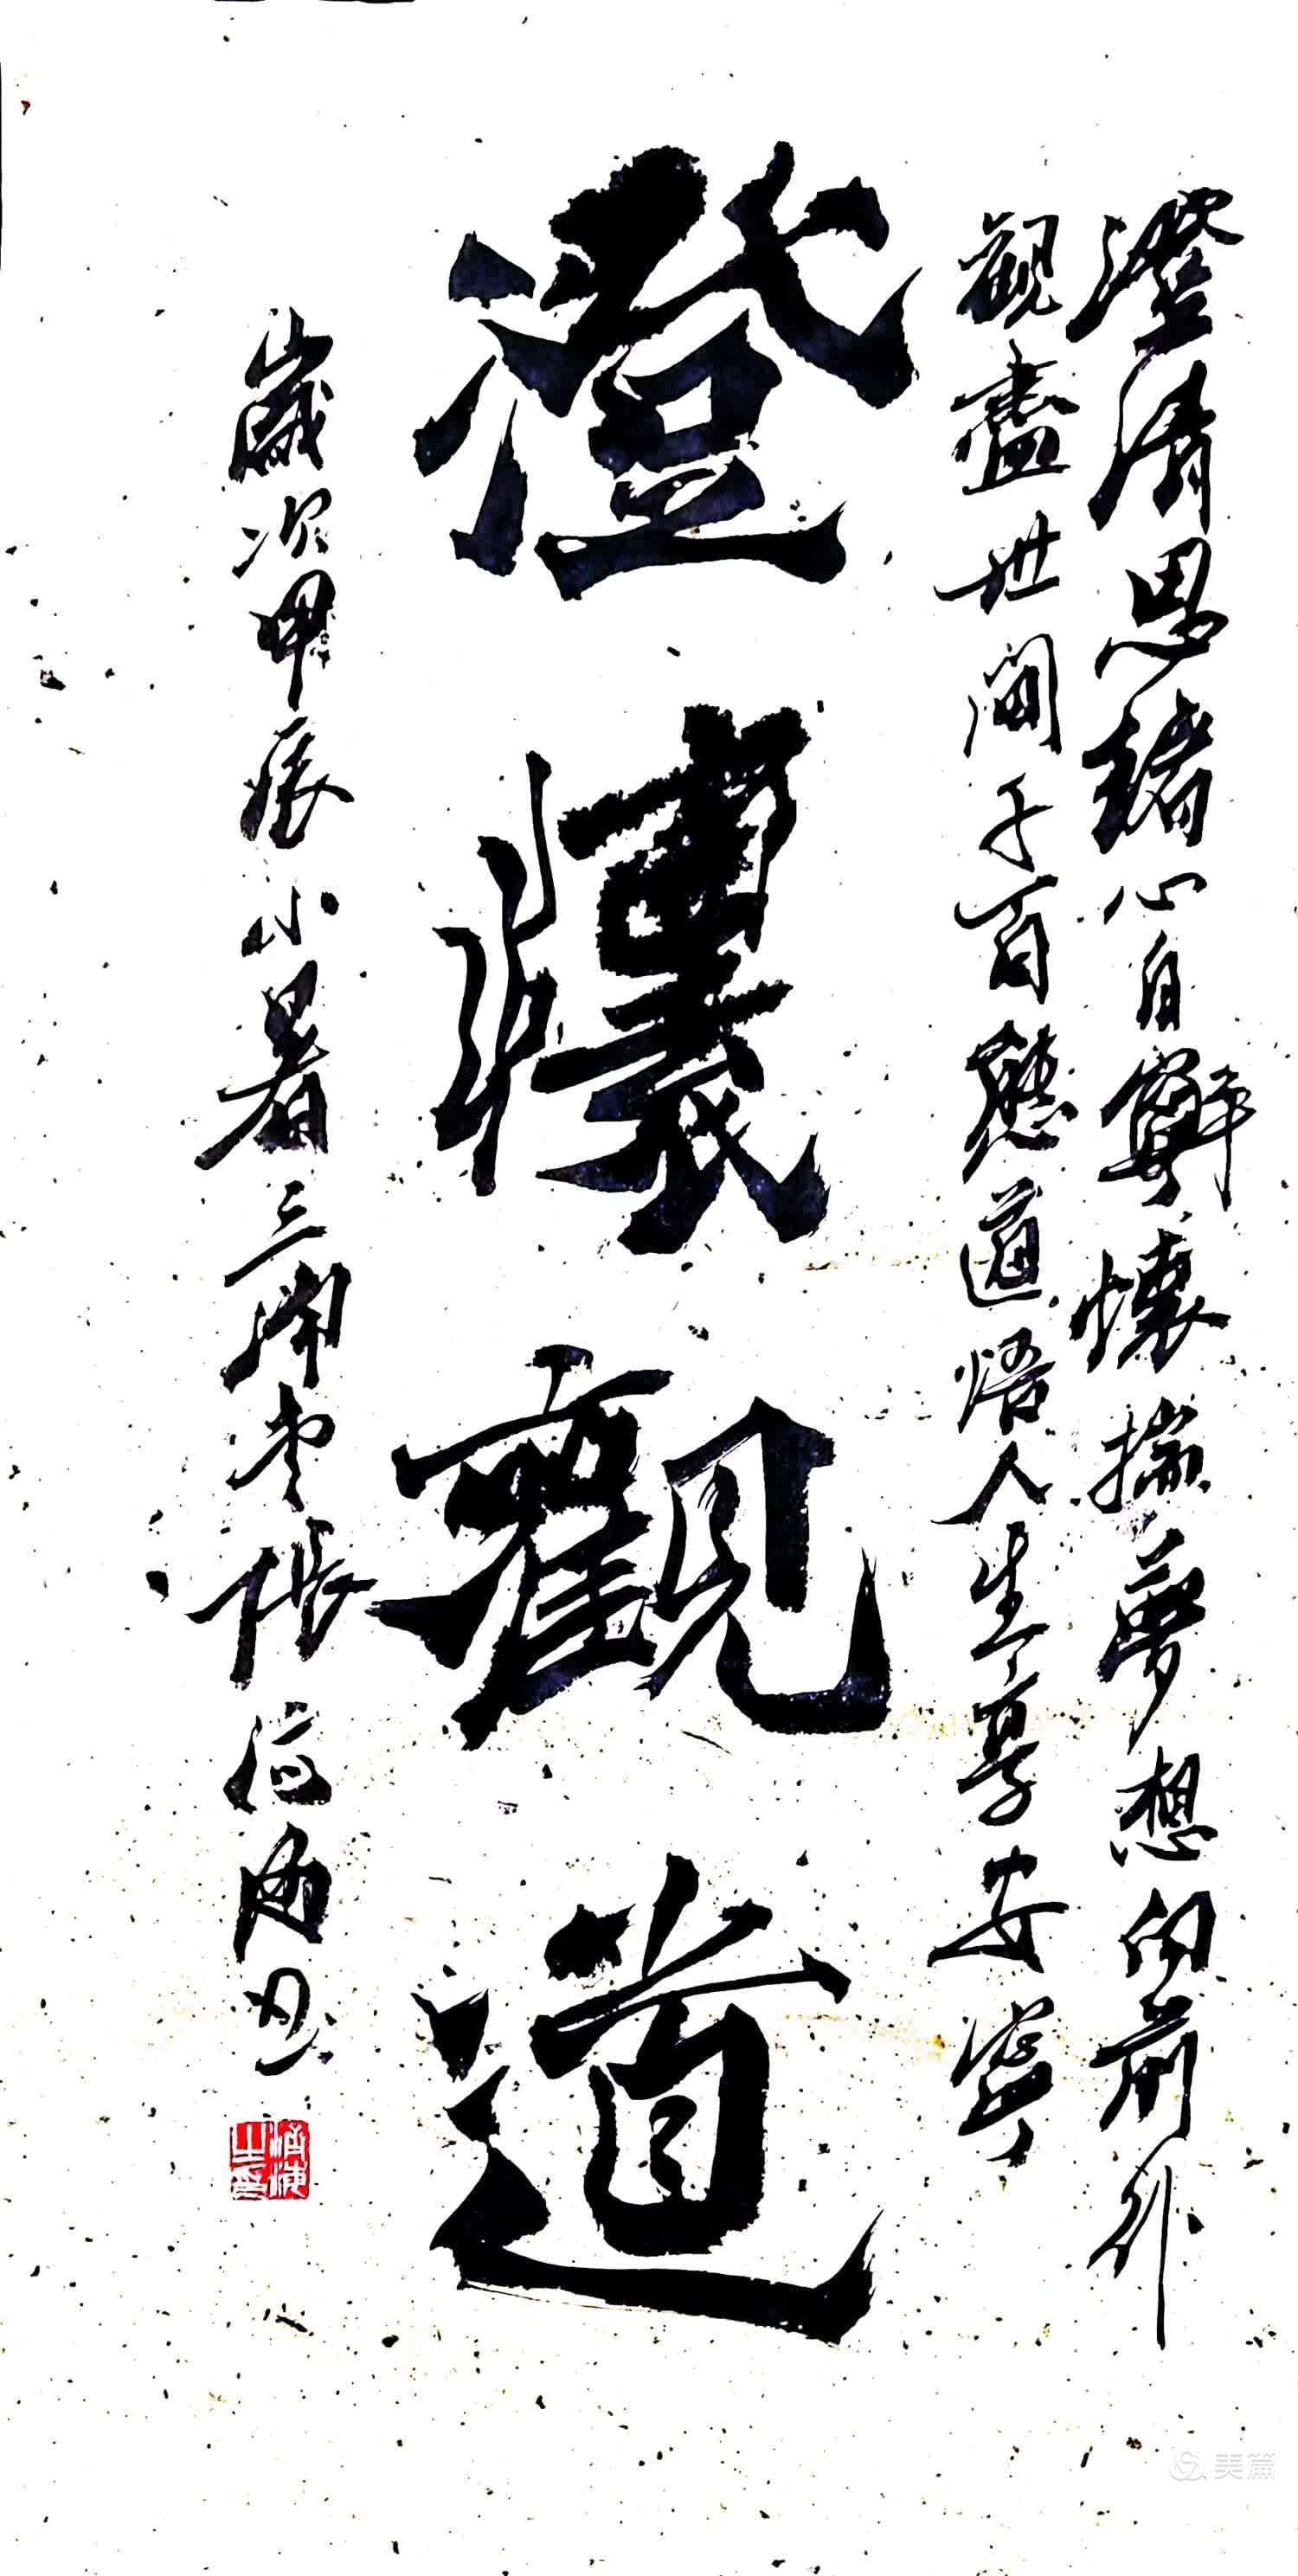 澄清思緒心自懷揣夢想向前行
觀盡世間千百態道悟人生享安寧
澄懷觀道
歲次甲辰小暑三堂張海书
海之印
美篇